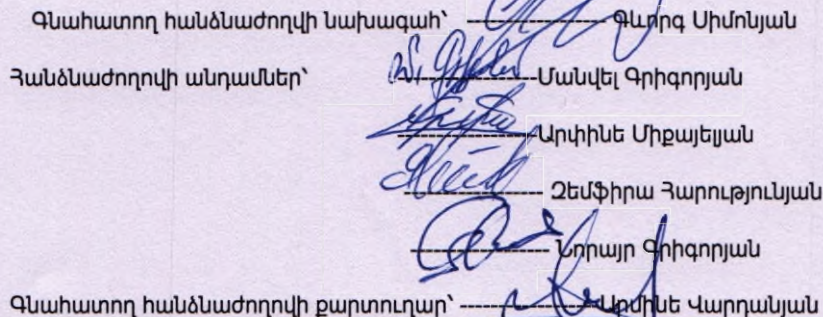 Գնահատող հանձնաժողվի նախագահ՝ -------------------- Գևորգ Սիմոնյան
Հանձնաժողովի անդամներ՝ --------------------Մանվել Գրիգորյան
--------------------Արփինե Միքայելյան
-------------------- Զեմֆիրա Հարությունյան
-------------------- Նորայր Գրիգորյան
Գնահատող հանձնաժողովի քարտուղար՝ --------------------Արմինե Վարդանյան